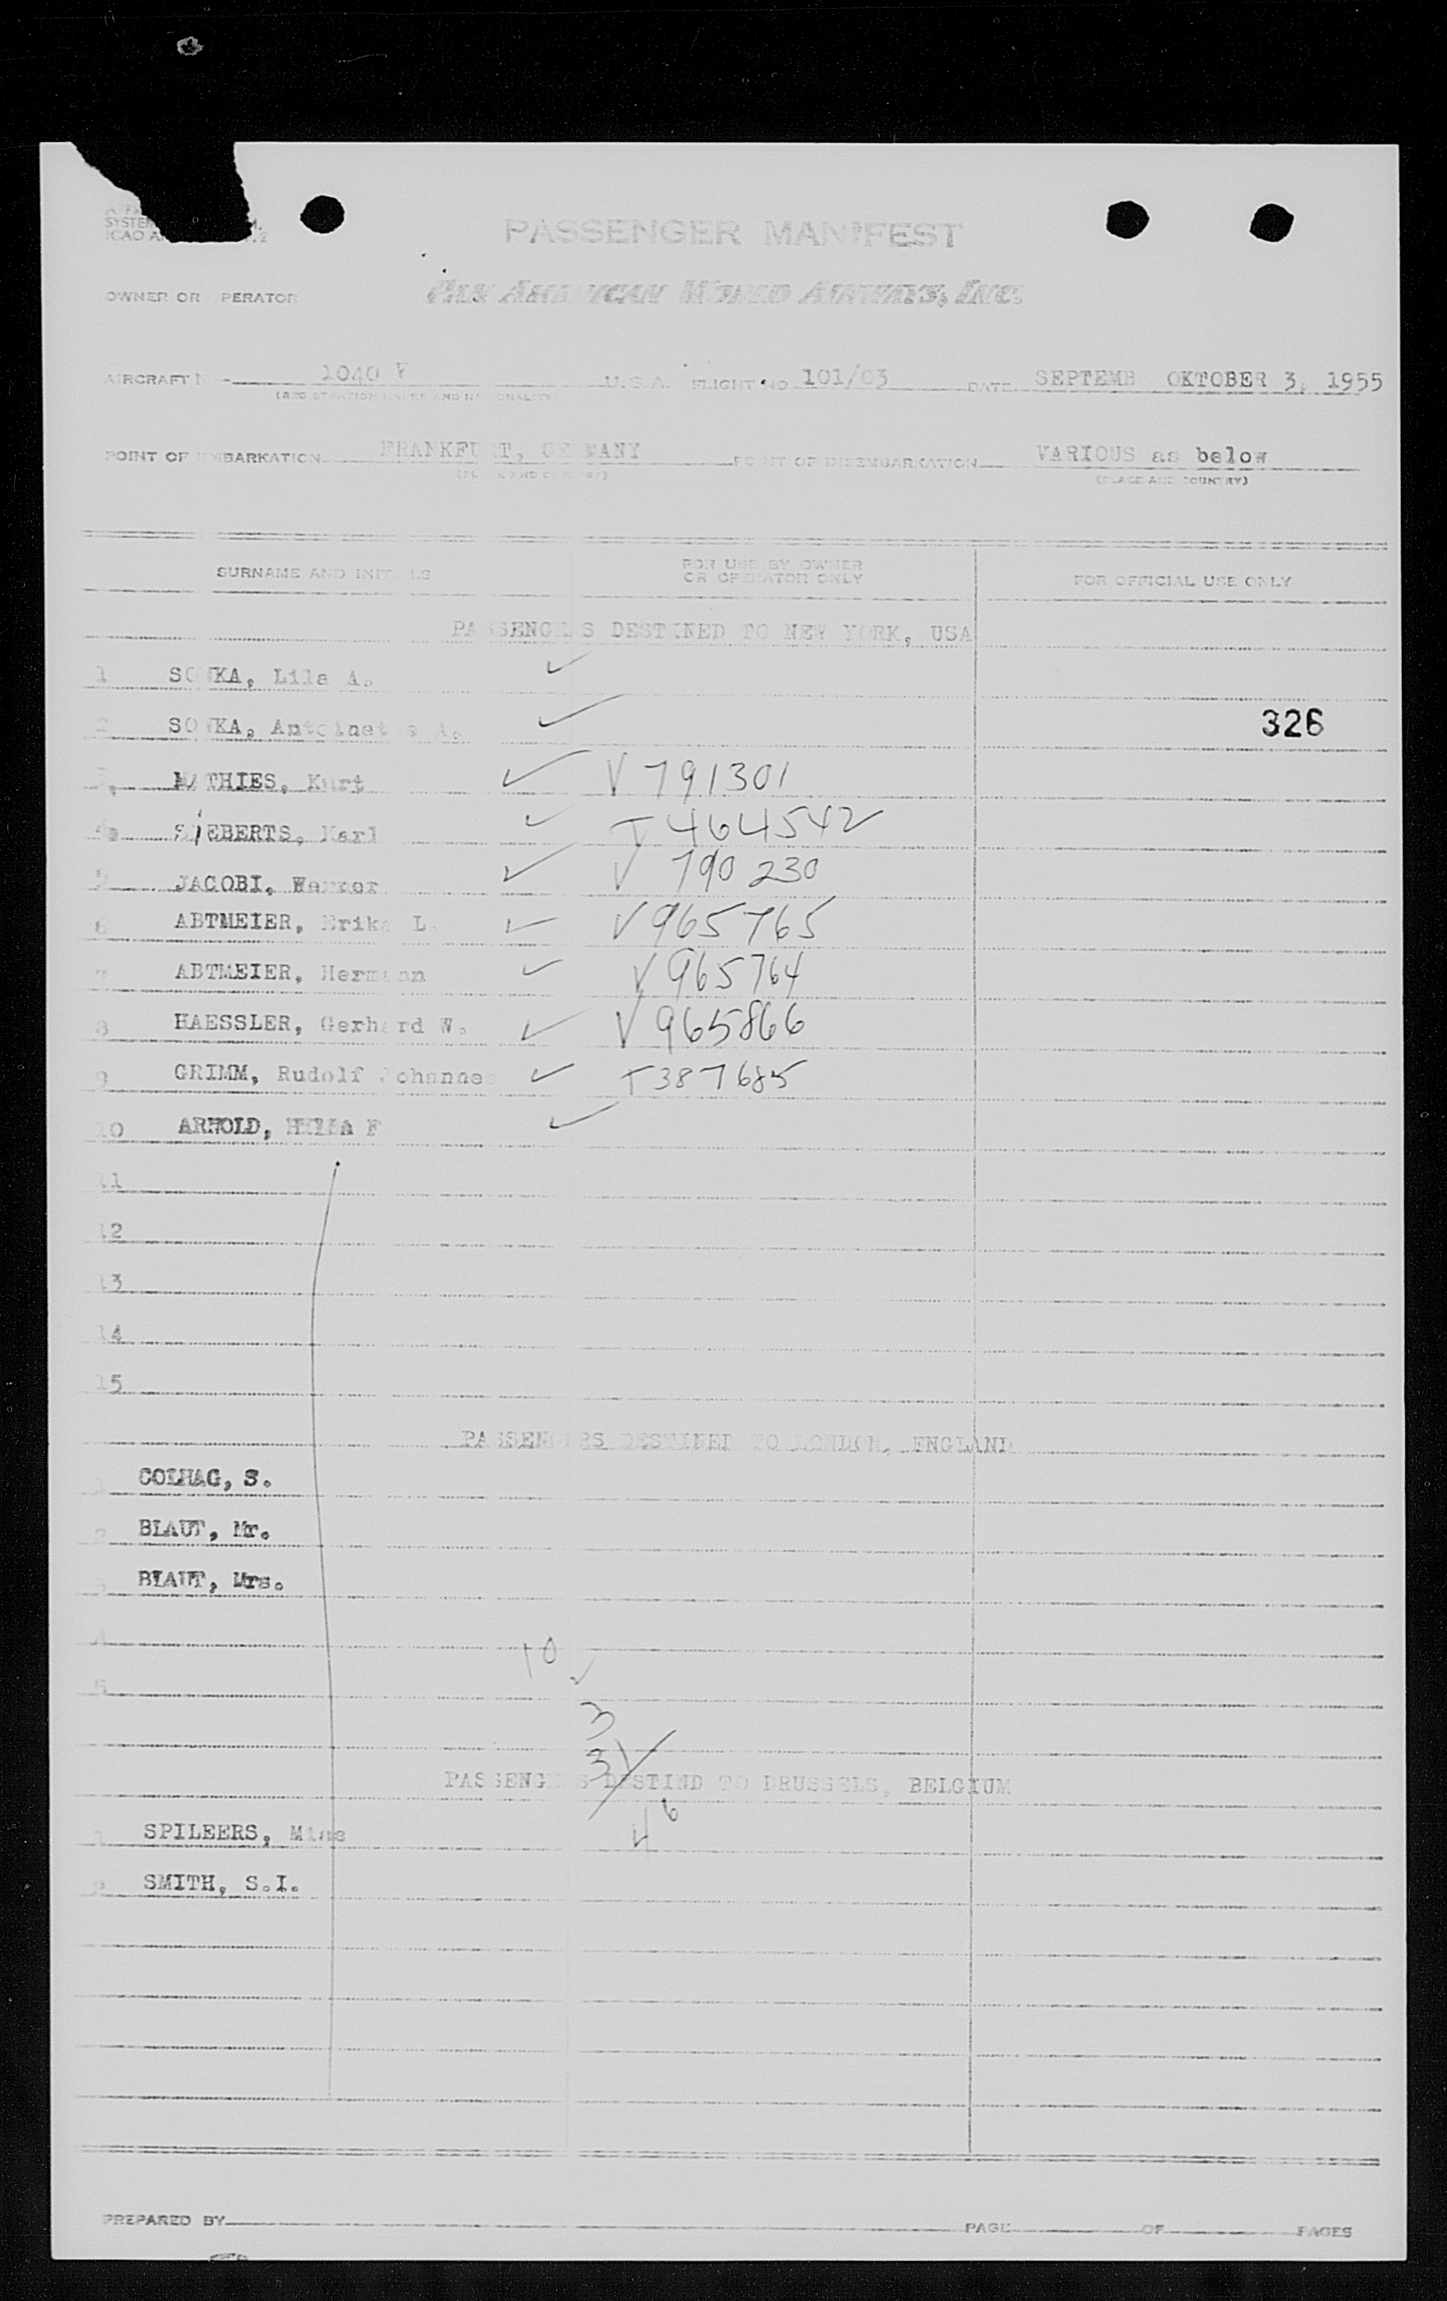 PASSENGER MANIFEST
OWNER OR OPERATOR PAN AMERICAN WORLD AIRWAYS, INC.
AIRCRAFT 1040 V U.S.A. FLIGHT NO 101/03 DATE SEPTEMB OKTOBER 3, 1955
(REGISTRATION MARKS AND NATIONALITY)
POINT OF EMBARKATION FRANKFURT, GERMANY POINT OF DISEMBARKATION VARIOUS as below
(PLACE AND COUNTRY) (PLACE AND COUNTRY)
SURNAME AND INITIALS FOR USE BY OWNER OR OPERATOR ONLY FOR OFFICIAL USE ONLY
PASSENGERS DESTINED TO NEW YORK, USA
1 SOWKA, Lila A.
2 SOWKA, Antoinette A. 326
3. MATHIES, Kurt V 791301
4 SIEBERTS, Karl T 464542
5 JACOBI, Werner V 790230
6 ABTMEIER, Erika L V 965765
7 ABTMEIER, Hermann V 965764
8 HAESSLER, Gerhard W. V 965866
9 GRIMM, Rudolf Johannes T 387685
10 ARNOLD, F
11
12
13
14
15
PASSENGERS DESTINED TO LONDON, ENGLAND
1 COLHAG, S.
2 BLAUT, Mr.
3 BLAUT, Mrs.
4 10
5
3
3
PASSENGERS DESTIND TO BRUSSELS, BELGIUM
1 SPILEERS, Miss
2 SMITH, S.I.
PREPARED BY PAGE OF PAGES